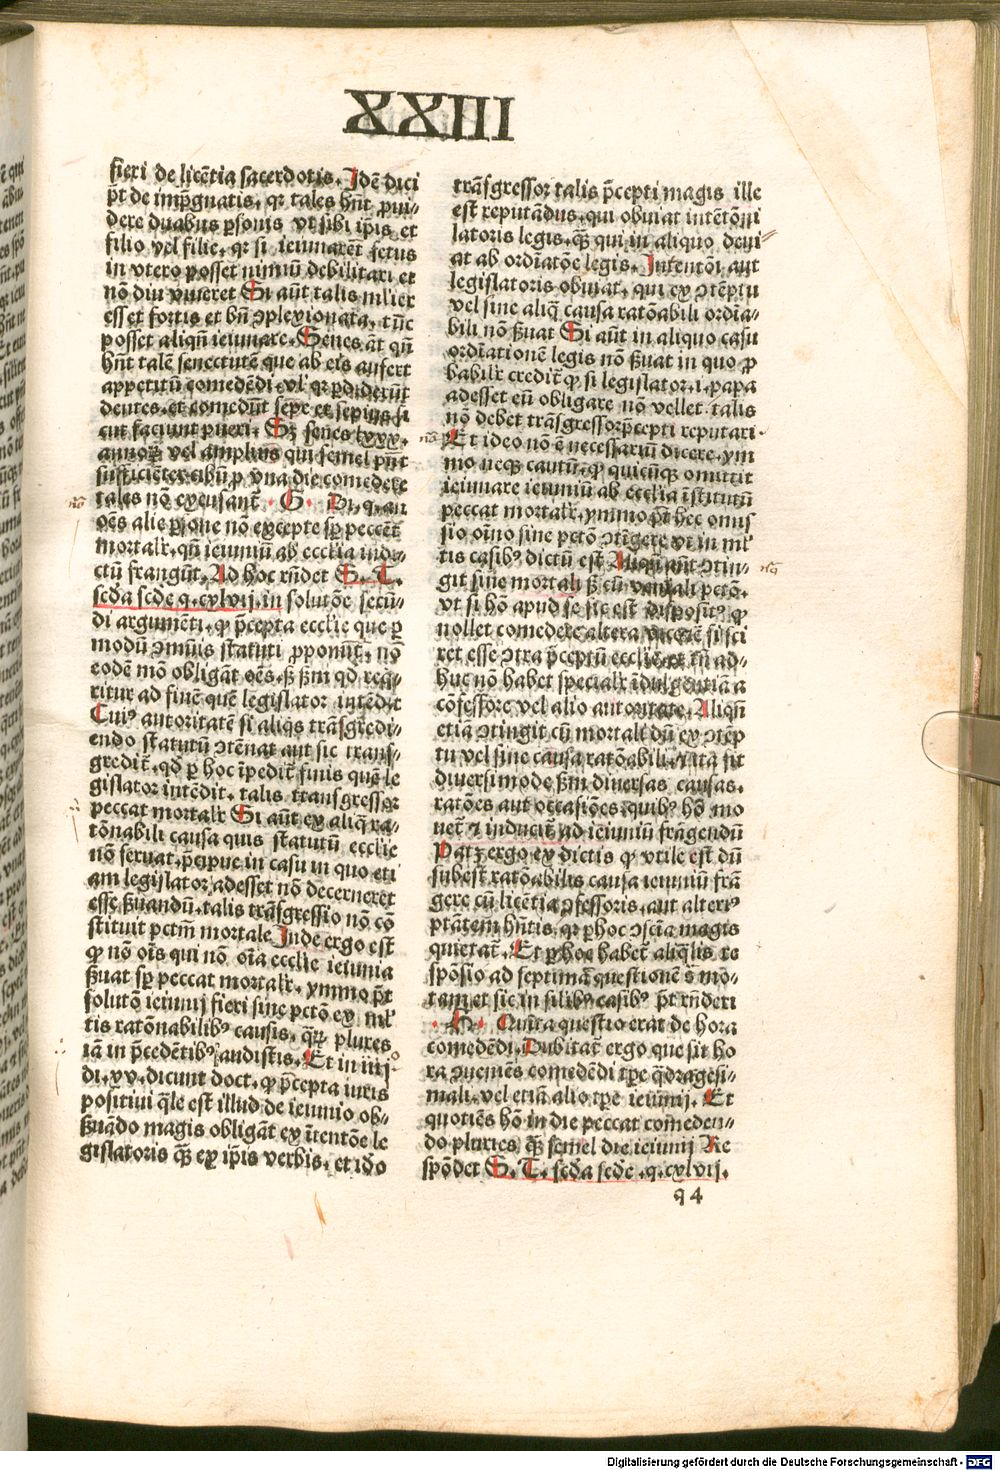 XXIII
fieri de licētia sacerdotis. Idē dici
pt̄ de imp̄gnatis. qꝛ tales hn̄t ꝓui-
dere duabus ꝑsonis vt sibi ip̄is et
filio vel filie. qꝛ si ieiunarēt fetus
in vtero posset nimiū debilitari et
nō diu viueret Si aūt talis mlier
esset fortis et bn̄ ꝯplexionata. tūc
posset aliqn̄ ieiunare. Senes āt qn̄
hn̄t talē senectutē que ab eis aufert
appetitū comedēdi. vl' qꝛ ꝑdiderūt
dentes. et comedūt sepe et sepius si
cut faciunt pueri. Sꝫ senes lxxx.
annoꝝ vel amplius qui semel pn̄t
sufficiēter cibū ꝓ vna die comedere
tales nō excusant̄. G. Di. q. an
oēs alie ꝑsone nō excepte sꝑ peccēt
mortalr̄. qn̄ ieiuniū ab ecclīa indi-
ctū frangūt. Ad hoc rn̄det S. T.
scd̄a scd̄e q. cxlvij. in solutōe secū-
di argumēti. ꝙ p̄cepta ecclīe que ꝑ
modū ꝯmūis statuti ꝓponūt̄. nō
eodē mō obligāt oēs. sꝫ ẜm qd̄ req̄-
ritur ad finē quē legislator intēdit
Cuiꝰ autoritatē si aliq̄s trāsgredi-
endo statutū ꝯtēnat aut sic trans-
gredit̄. qd̄ ꝑ hoc īpedit̄ finis quē le
gislator intēdit. talis transgressor
peccat mortalr̄ Si aūt ex aliq̄ ra-
tōnabili causa quis statutū ecclīe
nō seruat. p̄cipue in casu in quo eti
am legislator adesset nō decerneret
esse ẜuandū. talis trāsgressio nō cō
stituit pctm̄ mortale Inde ergo est
ꝙ nō oīs qui nō oīa ecclīe ieiunia
ẜuat sꝑ peccat mortalr̄. ymmo pt̄
solutō ieiunij fieri sine pctō ex ml'
tis ratōnabilibꝰ causis. q̄rꝫ plures
iā in p̄cedētibꝰ audistis. Et in iiij
di. xv. dicunt doct. ꝙ p̄cepta iuris
positiui q̄le est illud de ieiunio ob-
ẜuādo magis obligāt ex ītentōe le
gislatoris q̄ꝫ ex ip̄is verbis. et ido
trāsgressor talis p̄cepti magis ille
est reputādus. qui obuiat intētōni
latoris legis. q̄ꝫ qui in aliquo deui
at ab ordīatōe legis. Intentōi aut
legislatoris obuiat. qui ex ꝯtēptu
vel sine aliq̄ causa ratōabili ordīa-
bili nō ẜuat Si aūt in aliquo casu
ordīationē legis nō ẜuat in quo ꝓ
babilr̄ credit̄ ꝙ si legislator. i. papa
adesset eū obligare nō vellet. talis
nō debet trāsgressor p̄cepti reputari
Et ideo nō ē necessariū dicere. ym
mo neqꝫ cautū. ꝙ quicūqꝫ omittit
ieiunare ieiuniū ab ecclīa īstitutū
peccat mortalr̄. ymmo pt̄ hec omis
sio oīno sine pctō ꝯtīgere vt in ml'
tis casibꝰ dictū est Aliqn̄ aūt ꝯtin-
git sine mortali sꝫ cū veniali pctō.
vt si hō apud se sic est dispositꝰ ꝙ
nollet comedere altera vice si sci
ret esse ꝯtra p̄ceptū ecclīe et tn̄ ad-
huc nō habet specialr̄ īdulgentiā a
cōfessore vel alio autoritate. Aliqn̄
etiā ꝯtingit cū mortali dū ex ꝯtēp
tu vel sine causa ratōabili. Ita sit
diuersimode ẜm diuersas causas.
ratōes aut occasiōes. quibꝰ hō mo
uet̄ ⁊ inducit̄ ad ieiuniū frāgendū
Patꝫ ergo ex dictis ꝙ vtile est dū
subest ratōabilis causa ieiuniū frā
gere cū licētia ꝯfessoris. aut alteriꝰ
ptātem hn̄tis. qꝛ ꝑ hoc ꝯscīa magis
quietat̄. Et ꝑ hoc habet̄ aliq̄lis re
spōsio ad septimā questionē s̄ mō-
tam et sic in silibꝰ casibꝰ pt̄ rn̄deri
H. Quīta questio erat de hora
comedēdi. Dubitat̄ ergo que sit ho
ra ꝯueniēs comedēdi tꝑe q̄dragesi-
mali. vel etiā alio tꝑe ieiunij. Et
quotiēs hō in die peccat comedeN-
do pluries q̄ꝫ semel die ieiunij Re
spōdet S. T. scd̄a scd̄e. q. cxlvij.
q4
Digitalisierung gefördert durch die Deutsche Forschungsgemeinschaft - DFG